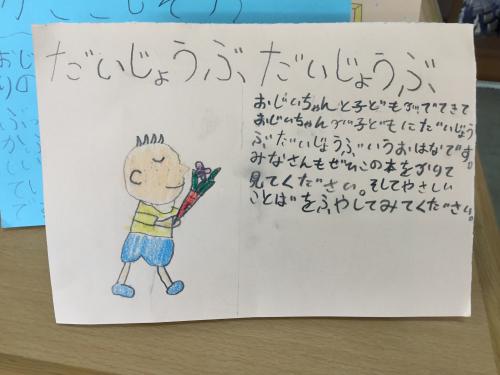 だいじょうぶ、だいじょうぶ
おじいちゃんと子どもがでてきて
おじいちゃんが子どもにだいじょう
ぶだいじょうぶいうおはなです。
みなさんもぜひこの本をかりて
見てください。そしてやさしい
ことばをふやしてみてください。